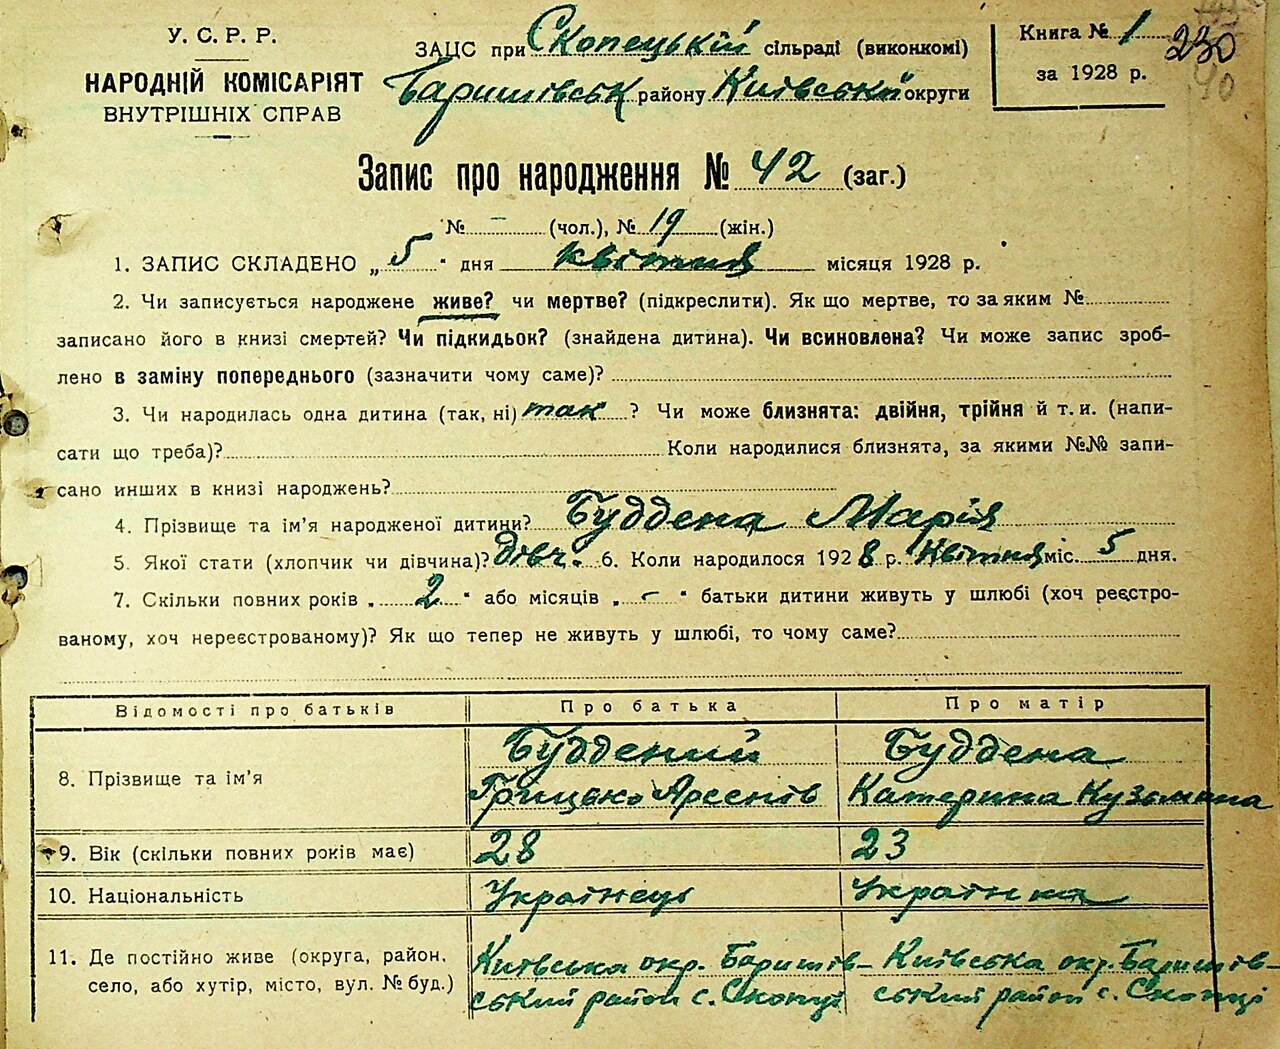 У. С. Р. Р.
НАРОДНІЙ КОМІСАРІЯТ
ВНУТРІШНІХ СПРАВ
ЗАЦС при Скопецькій сільраді (виконкомі)
Баришівськ району Київської округи
Книга № 1
за 1928 р.
230
90
Запис про народження № 42 (заг.)
№ – (чол.), № 19 (жін.)
1. ЗАПИС СКЛАДЕНО „ 5 " дня квітня місяця 1928 р.
2. Чи записується народжене живе? чи мертве? (підкреслити). Як що мертве, то за яким №
записано його в книзі смертей? Чи підкидьок? (знайдена дитина). Чи всиновлена? Чи може запис зроб-
лено в заміну попереднього (зазначити чому саме)?
3. Чи народилась одна дитина (так, ні) так ? Чи може близнята: двійня, трійня й т. и. (напи-
сати що треба)? Коли народилися близнята, за якими №№ запи-
сано инших в книзі народжень?
4. Прізвище та ім'я народженої дитини? Буддена Марія
5. Якої стати (хлопчик чи дівчина)? дівч. 6. Коли народилося 1928 р. квітня міс. 5 дня.
7. Скільки повних років „ 2 " або місяців „ – " батьки дитини живуть у шлюбі (хоч реєстро-
ваному, хоч нереєстрованому)? Як що тепер не живуть у шлюбі, то чому саме?
Відомості про батьків Про батька Про матір
8. Прізвище та ім'я Буддений Буддена
Грицько Арсенів Катерина Кузьмина
9. Вік (скільки повних років має) 28 23
10. Національність Українець Українка
11. Де постійно живе (округа, район, Київська окр. Баришів- Київська окр. Баришів-
село, або хутір, місто, вул. № буд.) ський район с. Скопці ський район с. Скопці